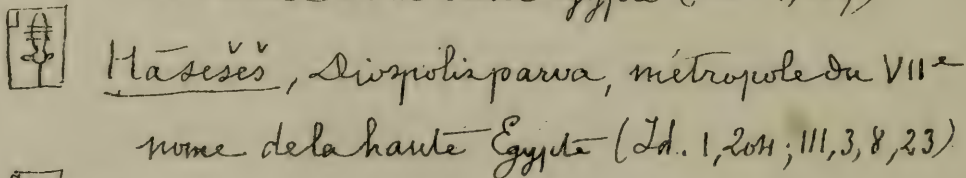 Hāsešěš, Diospolis parva, métropole du VIIe
nome de la haute Égypte (Id. 1, 204; III, 3, 8, 23)